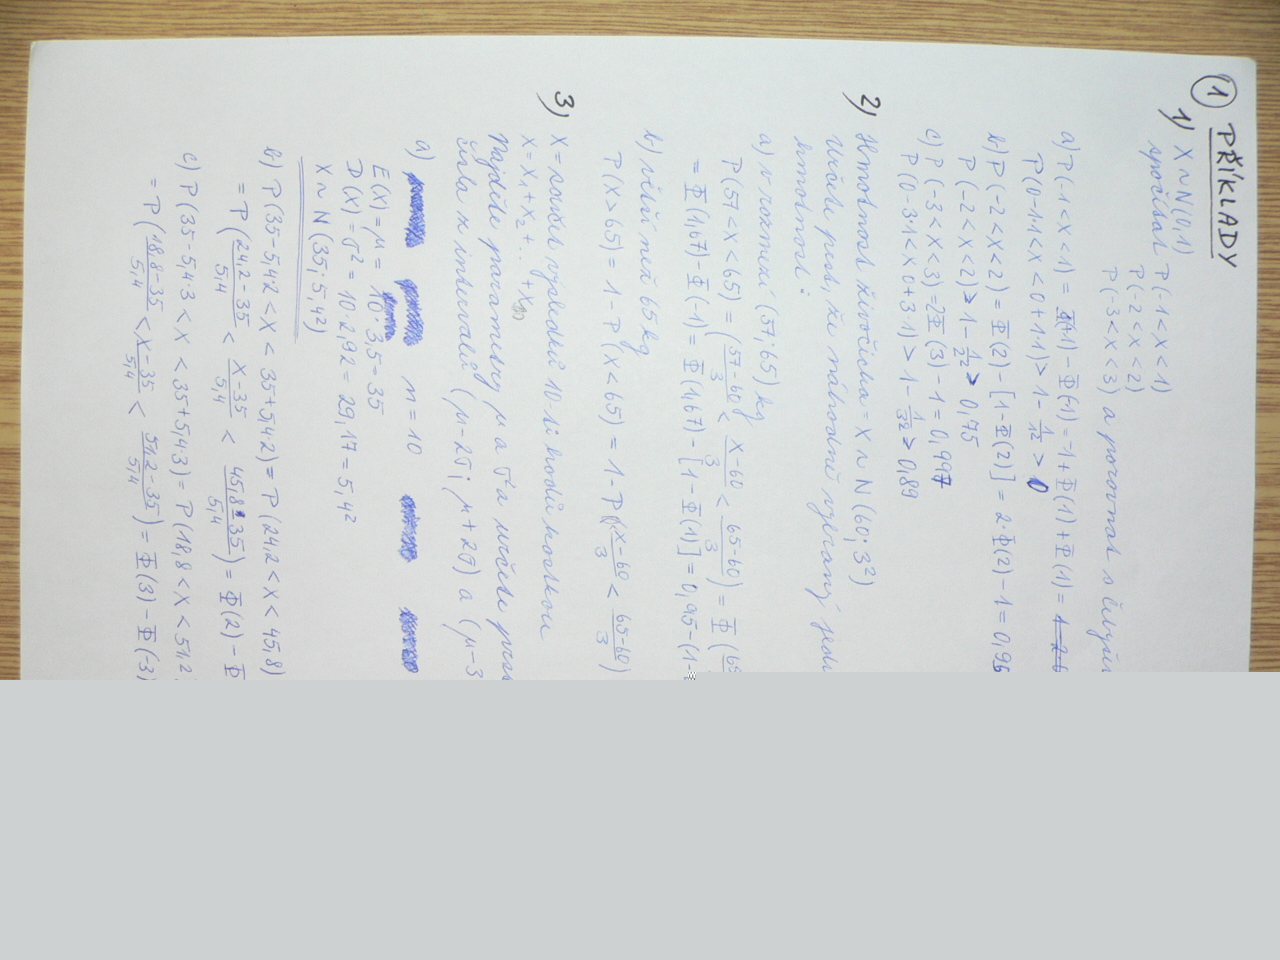 ① PŘÍKLADY
1) X ~ N(0,1)
spočítat P(-1<X<1)
P(-2<X<2)
P(-3<X<3) a porovnat s
a) P(-1<X<1) = Φ(1) - Φ(-1) = -1 + Φ(1) + Φ(1) =
P(0-1·1<X<0+1·1) > 1 - 1/1² > 0
b) P(-2<X<2) = Φ(2) - [1-Φ(2)] = 2·Φ(2) - 1 = 0,95
P(-2<X<2) > 1 - 1/2² > 0,75
c) P(-3<X<3) = 2Φ(3) - 1 = 0,997
P(0-3·1<X<0+3·1) > 1 - 1/3² > 0,89
2) Hmotnost živočicha = X ~ N(60; 3²)
Určete pravd, že náhodně vybraný jedn
hmotnost:
a) v rozmezí (57; 65) kg
P(57<X<65) = (57-60/3 < X-60/3 < 65-60/3) = Φ(65
= Φ(1,67) - Φ(-1) = Φ(1,67) - [1 - Φ(1)] = 0,95 - (1-
b) větší než 65 kg
P(X>65) = 1 - P(X<65) = 1 - P(X-60/3 < 65-60/3)
3) X = součet výsledků 10ti hodů kostkou
X = X₁ + X₂ + ... + X₁₀
Najděte parametry μ a σ² a určete prav
čísla z intervalů (μ-2σ; μ+2σ) a (μ-3
a) n = 10
E(X) = μ = 10·3,5 = 35
D(X) = σ² = 10·2,92 = 29,17 = 5,4²
X ~ N(35; 5,4²)
b) P(35-5,4·2 < X < 35+5,4·2) = P(24,2 < X < 45,8)
= P(24,2-35/5,4 < X-35/5,4 < 45,8-35/5,4) = Φ(2) - Φ
c) P(35-5,4·3 < X < 35+5,4·3) = P(18,8 < X < 51,2
= P(18,8-35/5,4 < X-35/5,4 < 51,2-35/5,4) = Φ(3) - Φ(-3)